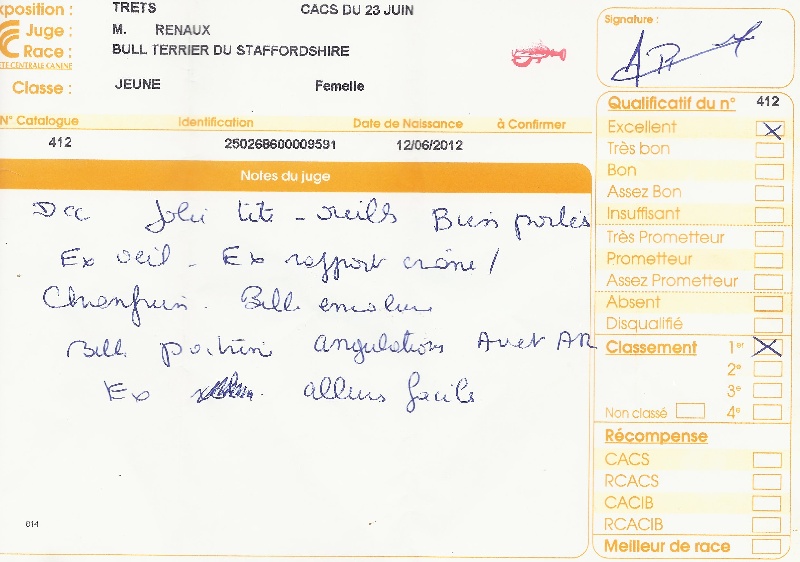 xposition : TRETS CACS DU 23 JUIN
Juge : M. RENAUX
Race : BULL TERRIER DU STAFFORDSHIRE
ÉTÉ CENTRALE CANINE
Classe : JEUNE Femelle
N° Catalogue Identification Date de Naissance à Confirmer
412 250268600009591 12/06/2012
Notes du juge
Dcc Jolie tête - oreilles Bien portées
Ex oeil - Ex rapport crâne /
Chanfrein. Belle encolure
Belle poitrine angulations Av et AR
Ex allures faciles
014
Signature :
Qualificatif du n° 412
Excellent
Très bon
Bon
Assez Bon
Insuffisant
Très Prometteur
Prometteur
Assez Prometteur
Absent
Disqualifié
Classement 1er
2e
3e
Non classé 4e
Récompense
CACS
RCACS
CACIB
RCACIB
Meilleur de race